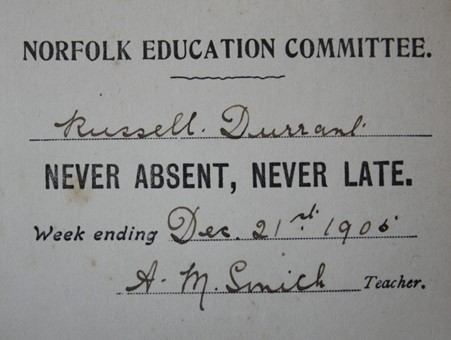 NORFOLK EDUCATION COMMITTEE.
Russell. Durrant
NEVER ABSENT, NEVER LATE.
Week ending Dec. 21st. 1905
A. M. Smith Teacher.